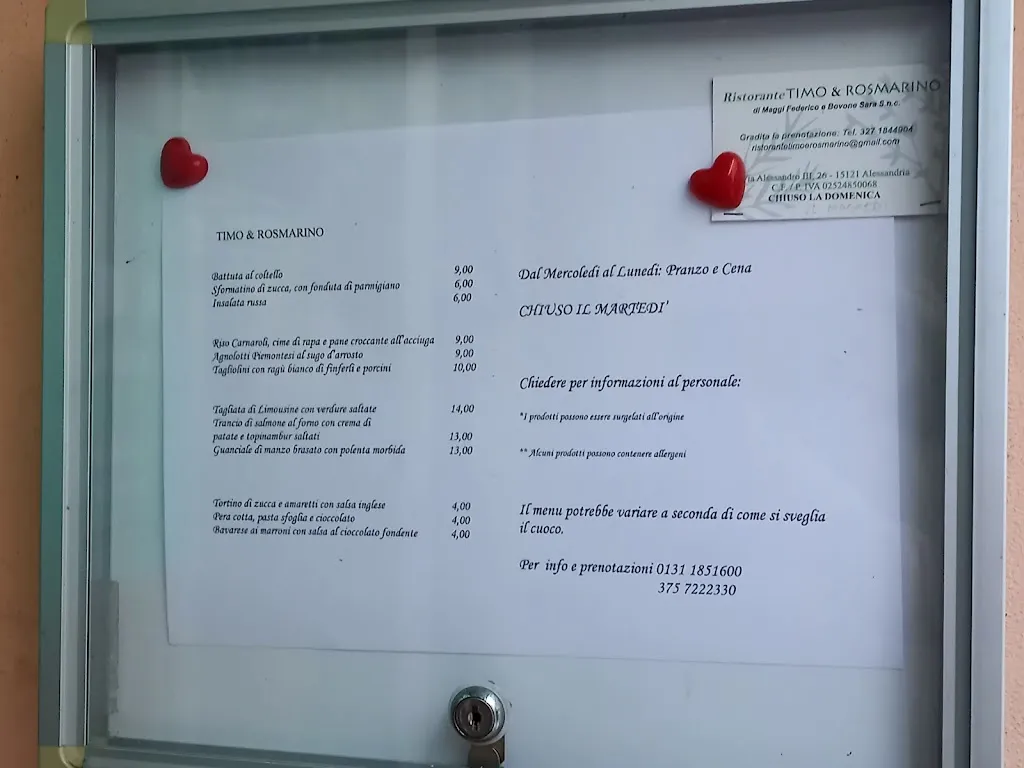 Ristorante TIMO & ROSMARINO
di Maggi Federico e Bovone Sara S.n.c.
Gradita la prenotazione: Tel. 327 1844904
ristorantetimoerosmarino@gmail.com
Via Alessandro III, 26 - 15121 Alessandria
C.F. / P. IVA 02524850068
CHIUSO LA DOMENICA
TIMO & ROSMARINO
Battuta al coltello 9,00
Sformatino di zucca, con fonduta di parmigiano 6,00
Insalata russa 6,00
Riso Carnaroli, cime di rapa e pane croccante all'acciuga 9,00
Agnolotti Piemontesi al sugo d'arrosto 9,00
Tagliolini con ragù bianco di finferli e porcini 10,00
Tagliata di Limousine con verdure saltate 14,00
Trancio di salmone al forno con crema di
patate e topinambur saltati 13,00
Guanciale di manzo brasato con polenta morbida 13,00
Tortino di zucca e amaretti con salsa inglese 4,00
Pera cotta, pasta sfoglia e cioccolato 4,00
Bavarese ai marroni con salsa al cioccolato fondente 4,00
Dal Mercoledì al Lunedì: Pranzo e Cena
CHIUSO IL MARTEDI'
Chiedere per informazioni al personale:
*I prodotti possono essere surgelati all'origine
** Alcuni prodotti possono contenere allergeni
Il menu potrebbe variare a seconda di come si sveglia
il cuoco.
Per info e prenotazioni 0131 1851600
375 7222330